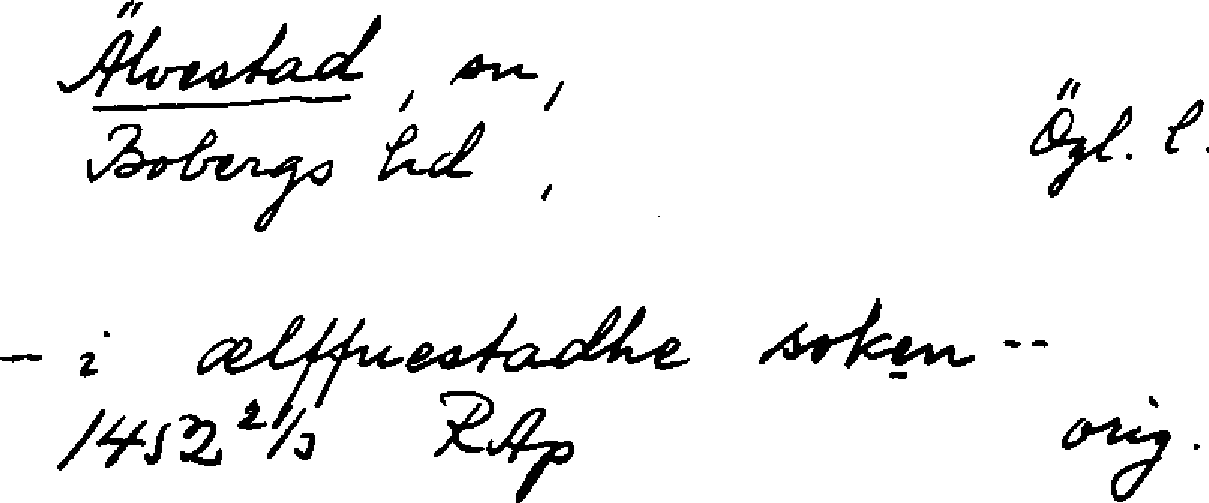 Älvestad, sn, Ögl. l.
Bobergs hd,
- i ælffuestadhe soken --
1452 2/3 RAp orig.